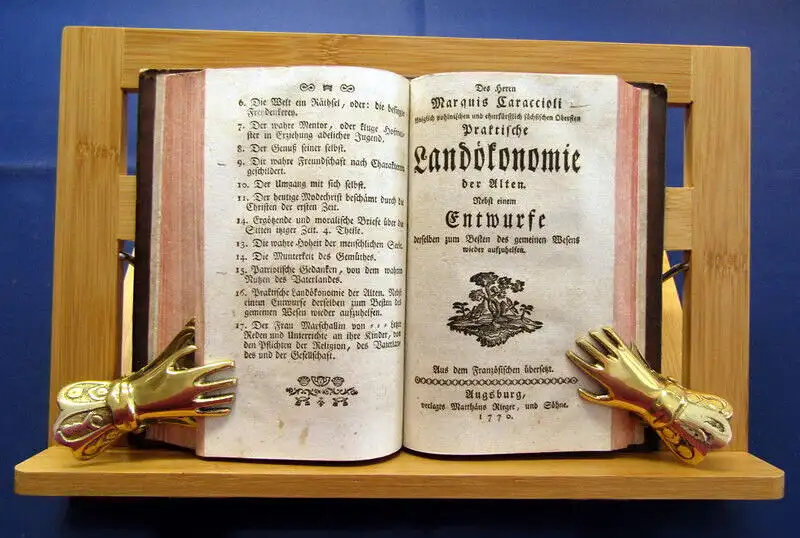 6. Die Welt ein Räthsel, oder: die besiegte
Freydenkerey.
7. Der wahre Mentor, oder kluge Hofmei-
ster in Erziehung adelicher Jugend.
8. Der Genuß seiner selbst.
9. Die wahre Freundschaft nach Charakteren
geschildert.
10. Der Umgang mit sich selbst.
11. Der heutige Modechrist beschämt durch die
Christen der ersten Zeit.
14. Ergötzende und moralische Briefe über die
Sitten itziger Zeit. 4. Theile.
13. Die wahre Hoheit der menschlichen Seele.
14. Die Munterkeit des Gemüthes.
15. Patriotische Gedanken, von dem wahren
Nutzen des Vaterlandes.
16. Praktische Landökonomie der Alten. Nebst
einem Entwurfe derselben zum Besten des
gemeinen Wesen wieder aufzuhelfen.
17. Der Frau Marschallin von
Reden und Unterrichte an ihre Kinder, von
den Pflichten der Religion, des Vaterlan-
des und der Gesellschaft.
Des Herrn
Marquis Caraccioli
königlich pohlnischen und churfürstlich sächsischen Obersten
Praktische
Landökonomie
der Alten.
Nebst einem
Entwurfe
derselben zum Besten des gemeinen Wesens
wieder aufzuhelfen.
Aus dem Französischen übersetzt.
Augsburg,
verlegts Matthäus Rieger, und Söhne.
1770.